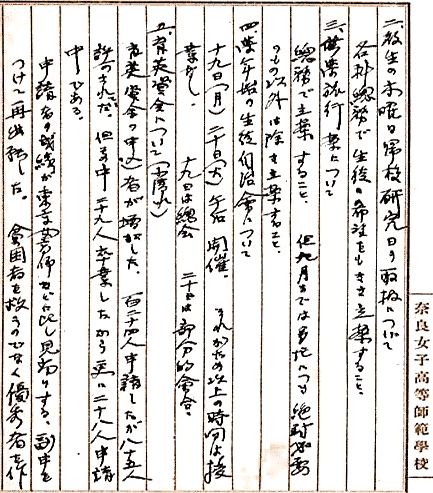 二、放生の木曜日帰校研究日の取扱について
各科總務で生徒の希望をもきき立案すること。
三、無案旅行案について
總務で立案すること、但九月までは多地につき絶対必要
のもの以外は除き立案すること。
四、学年始の生徒自治會について
十九日(月)二十日(火)午后開催。それがため以上の時間は授
業なし。十九日は總会 二十日は部分的會合。
五、育英資金について
育英資金の申込者が増加した。百二十四人申請したが八十五人
許可された。但其中二十九人卒業したから更に二十八人申請
中である。
申請者の成績が東京女高師などに比し見劣りする。副申を
つけて再出願した。貧困者を救うのでなく優秀者を作
奈良女子高等師範學校